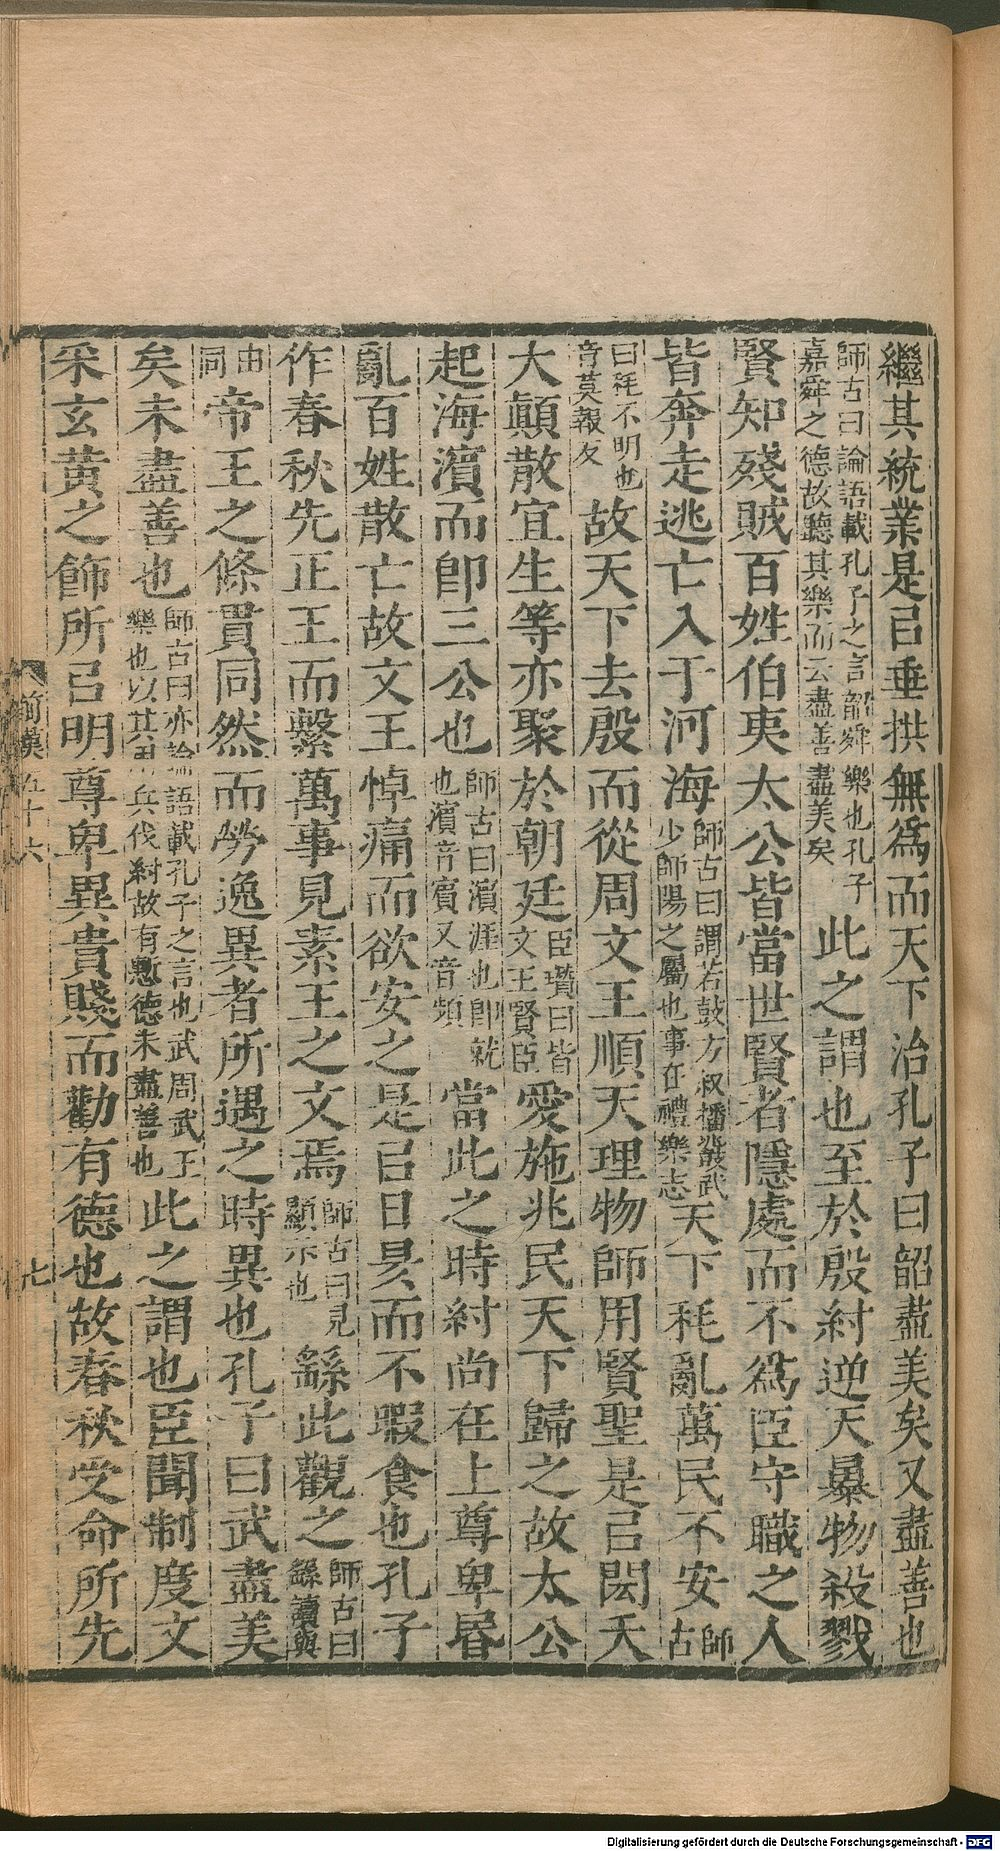 繼其統業是㠯垂拱無爲而天下治孔子曰韶盡美矣又盡善也
師古曰論語載孔子之言韶舜樂也孔子嘉舜之德故聽其樂而云盡善盡美矣此之謂也至於殷紂逆天暴物殺戮
賢知殘賊百姓伯夷太公皆當世賢者隱處而不爲臣守職之人
皆奔走逃亡入于河海師古曰謂若鼓方叔播鼗武少師陽之屬也事在禮樂志天下秏亂萬民不安師古
曰秏不明也音莫報反故天下去殷而從周文王順天理物師用賢聖是㠯閎夭
大顛散宜生等亦聚於朝廷臣瓚曰皆文王賢臣愛施兆民天下歸之故太公
起海濱而卽三公也師古曰濱涯也卽就也濱音賓又音頻當此之時紂尚在上尊卑昬
亂百姓散亡故文王悼痛而欲安之是㠯日昃而不暇食也孔子
作春秋先正王而繫萬事見素王之文焉師古曰見顯示也繇此觀之師古曰繇讀與
由同帝王之條貫同然而勞逸異者所遇之時異也孔子曰武盡美
矣未盡善也師古曰亦論語載孔子之言也武周武王樂也以其用兵伐紂故有慙德未盡善也此之謂也臣聞制度文
采玄黃之飾所㠯明尊卑異貴賤而勸有德也故春秋受命所先
前漢五十六
七
Digitalisierung gefördert durch die Deutsche Forschungsgemeinschaft - DFG